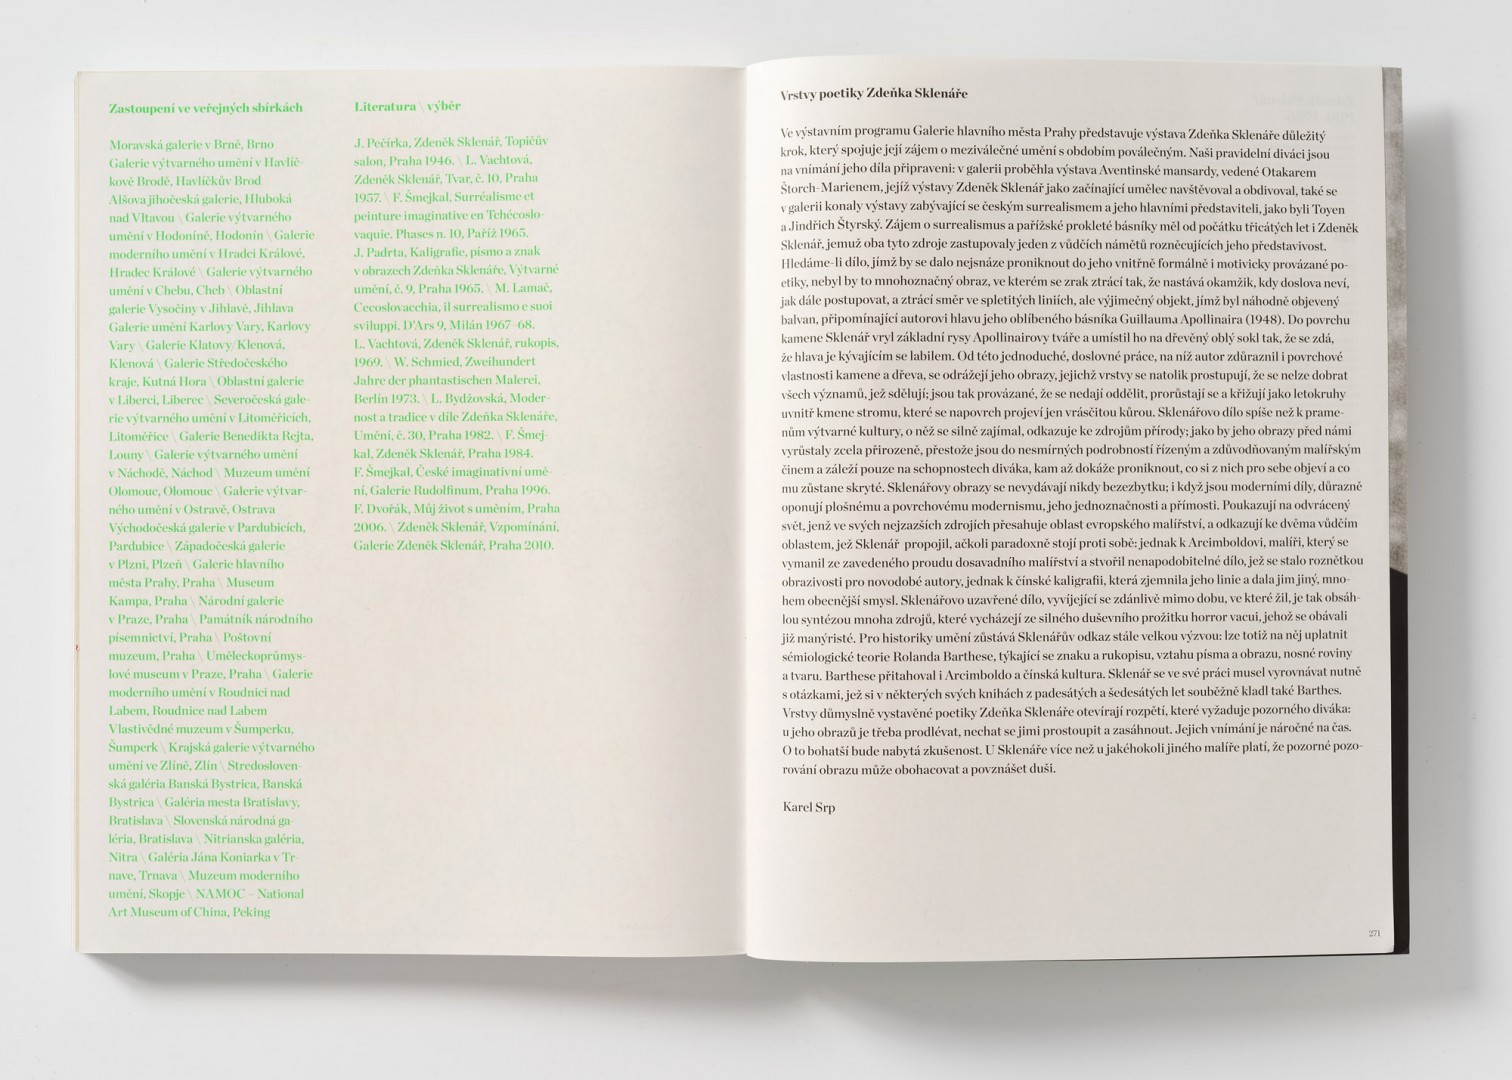 Zastoupení ve veřejných sbírkách
Moravská galerie v Brně, Brno
Galerie výtvarného umění v Havlíč-
kově Brodě, Havlíčkův Brod
Alšova jihočeská galerie, Hluboká
nad Vltavou \ Galerie výtvarného
umění v Hodoníně, Hodonín \ Galerie
moderního umění v Hradci Králové,
Hradec Králové \ Galerie výtvarného
umění v Chebu, Cheb \ Oblastní
galerie Vysočiny v Jihlavě, Jihlava
Galerie umění Karlovy Vary, Karlovy
Vary \ Galerie Klatovy/Klenová,
Klenová \ Galerie Středočeského
kraje, Kutná Hora \ Oblastní galerie
v Liberci, Liberec \ Severočeská gale-
rie výtvarného umění v Litoměřicích,
Litoměřice \ Galerie Benedikta Rejta,
Louny \ Galerie výtvarného umění
v Náchodě, Náchod \ Muzeum umění
Olomouc, Olomouc \ Galerie výtvar-
ného umění v Ostravě, Ostrava
Východočeská galerie v Pardubicích,
Pardubice \ Západočeská galerie
v Plzni, Plzeň \ Galerie hlavního
města Prahy, Praha \ Museum
Kampa, Praha \ Národní galerie
v Praze, Praha \ Památník národního
písemnictví, Praha \ Poštovní
muzeum, Praha \ Uměleckoprůmys-
lové museum v Praze, Praha \ Galerie
moderního umění v Roudnici nad
Labem, Roudnice nad Labem
Vlastivědné muzeum v Šumperku,
Šumperk \ Krajská galerie výtvarného
umění ve Zlíně, Zlín \ Stredosloven-
ská galéria Banská Bystrica, Banská
Bystrica \ Galéria mesta Bratislavy,
Bratislava \ Slovenská národná ga-
léria, Bratislava \ Nitrianska galéria,
Nitra \ Galéria Jána Koniarka v Tr-
nave, Trnava \ Muzeum moderního
umění, Skopje \ NAMOC – National
Art Museum of China, Peking
Literatura \ výběr
J. Pečírka, Zdeněk Sklenář, Topičův
salon, Praha 1946. \ L. Vachtová,
Zdeněk Sklenář, Tvar, č. 10, Praha
1957. \ F. Šmejkal, Surréalisme et
peinture imaginative en Tchécoslo-
vaquie. Phases n. 10, Paříž 1965.
J. Padrta, Kaligrafie, písmo a znak
v obrazech Zdeňka Sklenáře, Výtvarné
umění, č. 9, Praha 1965. \ M. Lamač,
Cecoslovacchia, il surrealismo e suoi
sviluppi. D'Ars 9, Milán 1967–68.
L. Vachtová, Zdeněk Sklenář, rukopis,
1969. \ W. Schmied, Zweihundert
Jahre der phantastischen Malerei,
Berlín 1973. \ L. Bydžovská, Moder-
nost a tradice v díle Zdeňka Sklenáře,
Umění, č. 30, Praha 1982. \ F. Šmej-
kal, Zdeněk Sklenář, Praha 1984.
F. Šmejkal, České imaginativní umě-
ní, Galerie Rudolfinum, Praha 1996.
F. Dvořák, Můj život s uměním, Praha
2006. \ Zdeněk Sklenář, Vzpomínání,
Galerie Zdeněk Sklenář, Praha 2010.
Vrstvy poetiky Zdeňka Sklenáře
Ve výstavním programu Galerie hlavního města Prahy představuje výstava Zdeňka Sklenáře důležitý
krok, který spojuje její zájem o meziválečné umění s obdobím poválečným. Naši pravidelní diváci jsou
na vnímání jeho díla připraveni: v galerii proběhla výstava Aventinské mansardy, vedené Otakarem
Štorch-Marienem, jejíž výstavy Zdeněk Sklenář jako začínající umělec navštěvoval a obdivoval, také se
v galerii konaly výstavy zabývající se českým surrealismem a jeho hlavními představiteli, jako byli Toyen
a Jindřich Štyrský. Zájem o surrealismus a pařížské prokleté básníky měl od počátku třicátých let i Zdeněk
Sklenář, jemuž oba tyto zdroje zastupovaly jeden z vůdčích námětů rozněcujících jeho představivost.
Hledáme-li dílo, jímž by se dalo nejsnáze proniknout do jeho vnitřně formálně i motivicky provázané po-
etiky, nebyl by to mnohoznačný obraz, ve kterém se zrak ztrácí tak, že nastává okamžik, kdy doslova neví,
jak dále postupovat, a ztrácí směr ve spletitých liniích, ale výjimečný objekt, jímž byl náhodně objevený
balvan, připomínající autorovi hlavu jeho oblíbeného básníka Guillauma Apollinaira (1948). Do povrchu
kamene Sklenář vryl základní rysy Apollinairovy tváře a umístil ho na dřevěný oblý sokl tak, že se zdá,
že hlava je kývajícím se labilem. Od této jednoduché, doslovné práce, na níž autor zdůraznil i povrchové
vlastnosti kamene a dřeva, se odrážejí jeho obrazy, jejichž vrstvy se natolik prostupují, že se nelze dobrat
všech významů, jež sdělují; jsou tak provázané, že se nedají oddělit, prorůstají se a křižují jako letokruhy
uvnitř kmene stromu, které se napovrch projeví jen vrásčitou kůrou. Sklenářovo dílo spíše než k prame-
nům výtvarné kultury, o něž se silně zajímal, odkazuje ke zdrojům přírody; jako by jeho obrazy před námi
vyrůstaly zcela přirozeně, přestože jsou do nesmírných podrobností řízeným a zdůvodňovaným malířským
činem a záleží pouze na schopnostech diváka, kam až dokáže proniknout, co si z nich pro sebe objeví a co
mu zůstane skryté. Sklenářovy obrazy se nevydávají nikdy bezezbytku; i když jsou moderními díly, důrazně
oponují plošnému a povrchovému modernismu, jeho jednoznačnosti a přímosti. Poukazují na odvrácený
svět, jenž ve svých nejzazších zdrojích přesahuje oblast evropského malířství, a odkazují ke dvěma vůdčím
oblastem, jež Sklenář propojil, ačkoli paradoxně stojí proti sobě: jednak k Arcimboldovi, malíři, který se
vymanil ze zavedeného proudu dosavadního malířství a stvořil nenapodobitelné dílo, jež se stalo roznětkou
obrazivosti pro novodobé autory, jednak k čínské kaligrafii, která zjemnila jeho linie a dala jim jiný, mno-
hem obecnější smysl. Sklenářovo uzavřené dílo, vyvíjející se zdánlivě mimo dobu, ve které žil, je tak obsáh-
lou syntézou mnoha zdrojů, které vycházejí ze silného duševního prožitku horror vacui, jehož se obávali
již manýristé. Pro historiky umění zůstává Sklenářův odkaz stále velkou výzvou: lze totiž na něj uplatnit
sémiologické teorie Rolanda Barthese, týkající se znaku a rukopisu, vztahu písma a obrazu, nosné roviny
a tvaru. Barthese přitahoval i Arcimboldo a čínská kultura. Sklenář se ve své práci musel vyrovnávat nutně
s otázkami, jež si v některých svých knihách z padesátých a šedesátých let souběžně kladl také Barthes.
Vrstvy důmyslně vystavěné poetiky Zdeňka Sklenáře otevírají rozpětí, které vyžaduje pozorného diváka:
u jeho obrazů je třeba prodlévat, nechat se jimi prostoupit a zasáhnout. Jejich vnímání je náročné na čas.
O to bohatší bude nabytá zkušenost. U Sklenáře více než u jakéhokoli jiného malíře platí, že pozorné pozo-
rování obrazu může obohacovat a povznášet duši.
Karel Srp
271